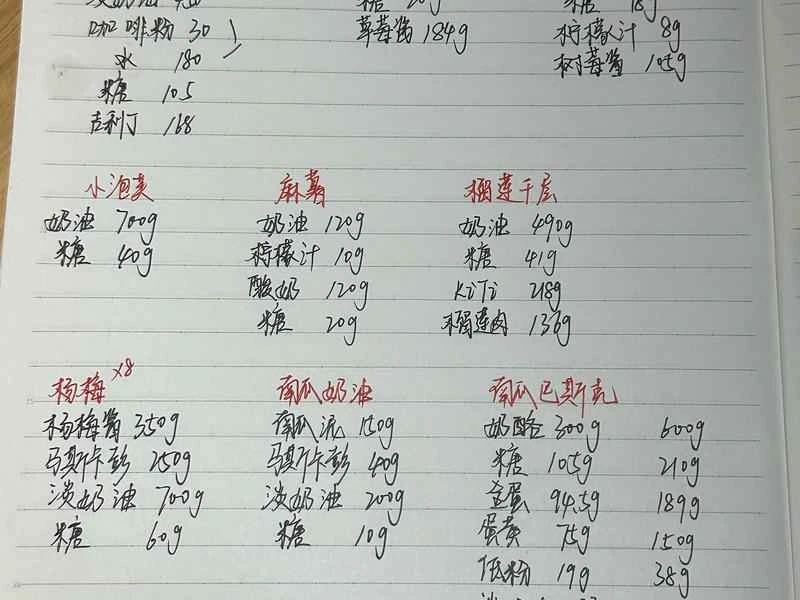 咖啡粉 30
水 180
糖 105
吉利丁 168
糖 20g
草莓酱 184g
糖 18g
柠檬汁 8g
树莓酱 105g
小泡芙
奶油 700g
糖 40g
麻薯
奶油 120g
柠檬汁 10g
酸奶 120g
糖 20g
榴莲千层
奶油 490g
糖 41g
KiTi 218g
榴莲肉 136g
杨梅 x8
杨梅酱 350g
马斯卡彭 250g
淡奶油 700g
糖 60g
南瓜奶油
南瓜泥 150g
马斯卡彭 40g
淡奶油 200g
糖 10g
南瓜巴斯克
奶酪 300g 600g
糖 105g 210g
全蛋 94.5g 189g
蛋黄 75g 150g
低粉 19g 38g